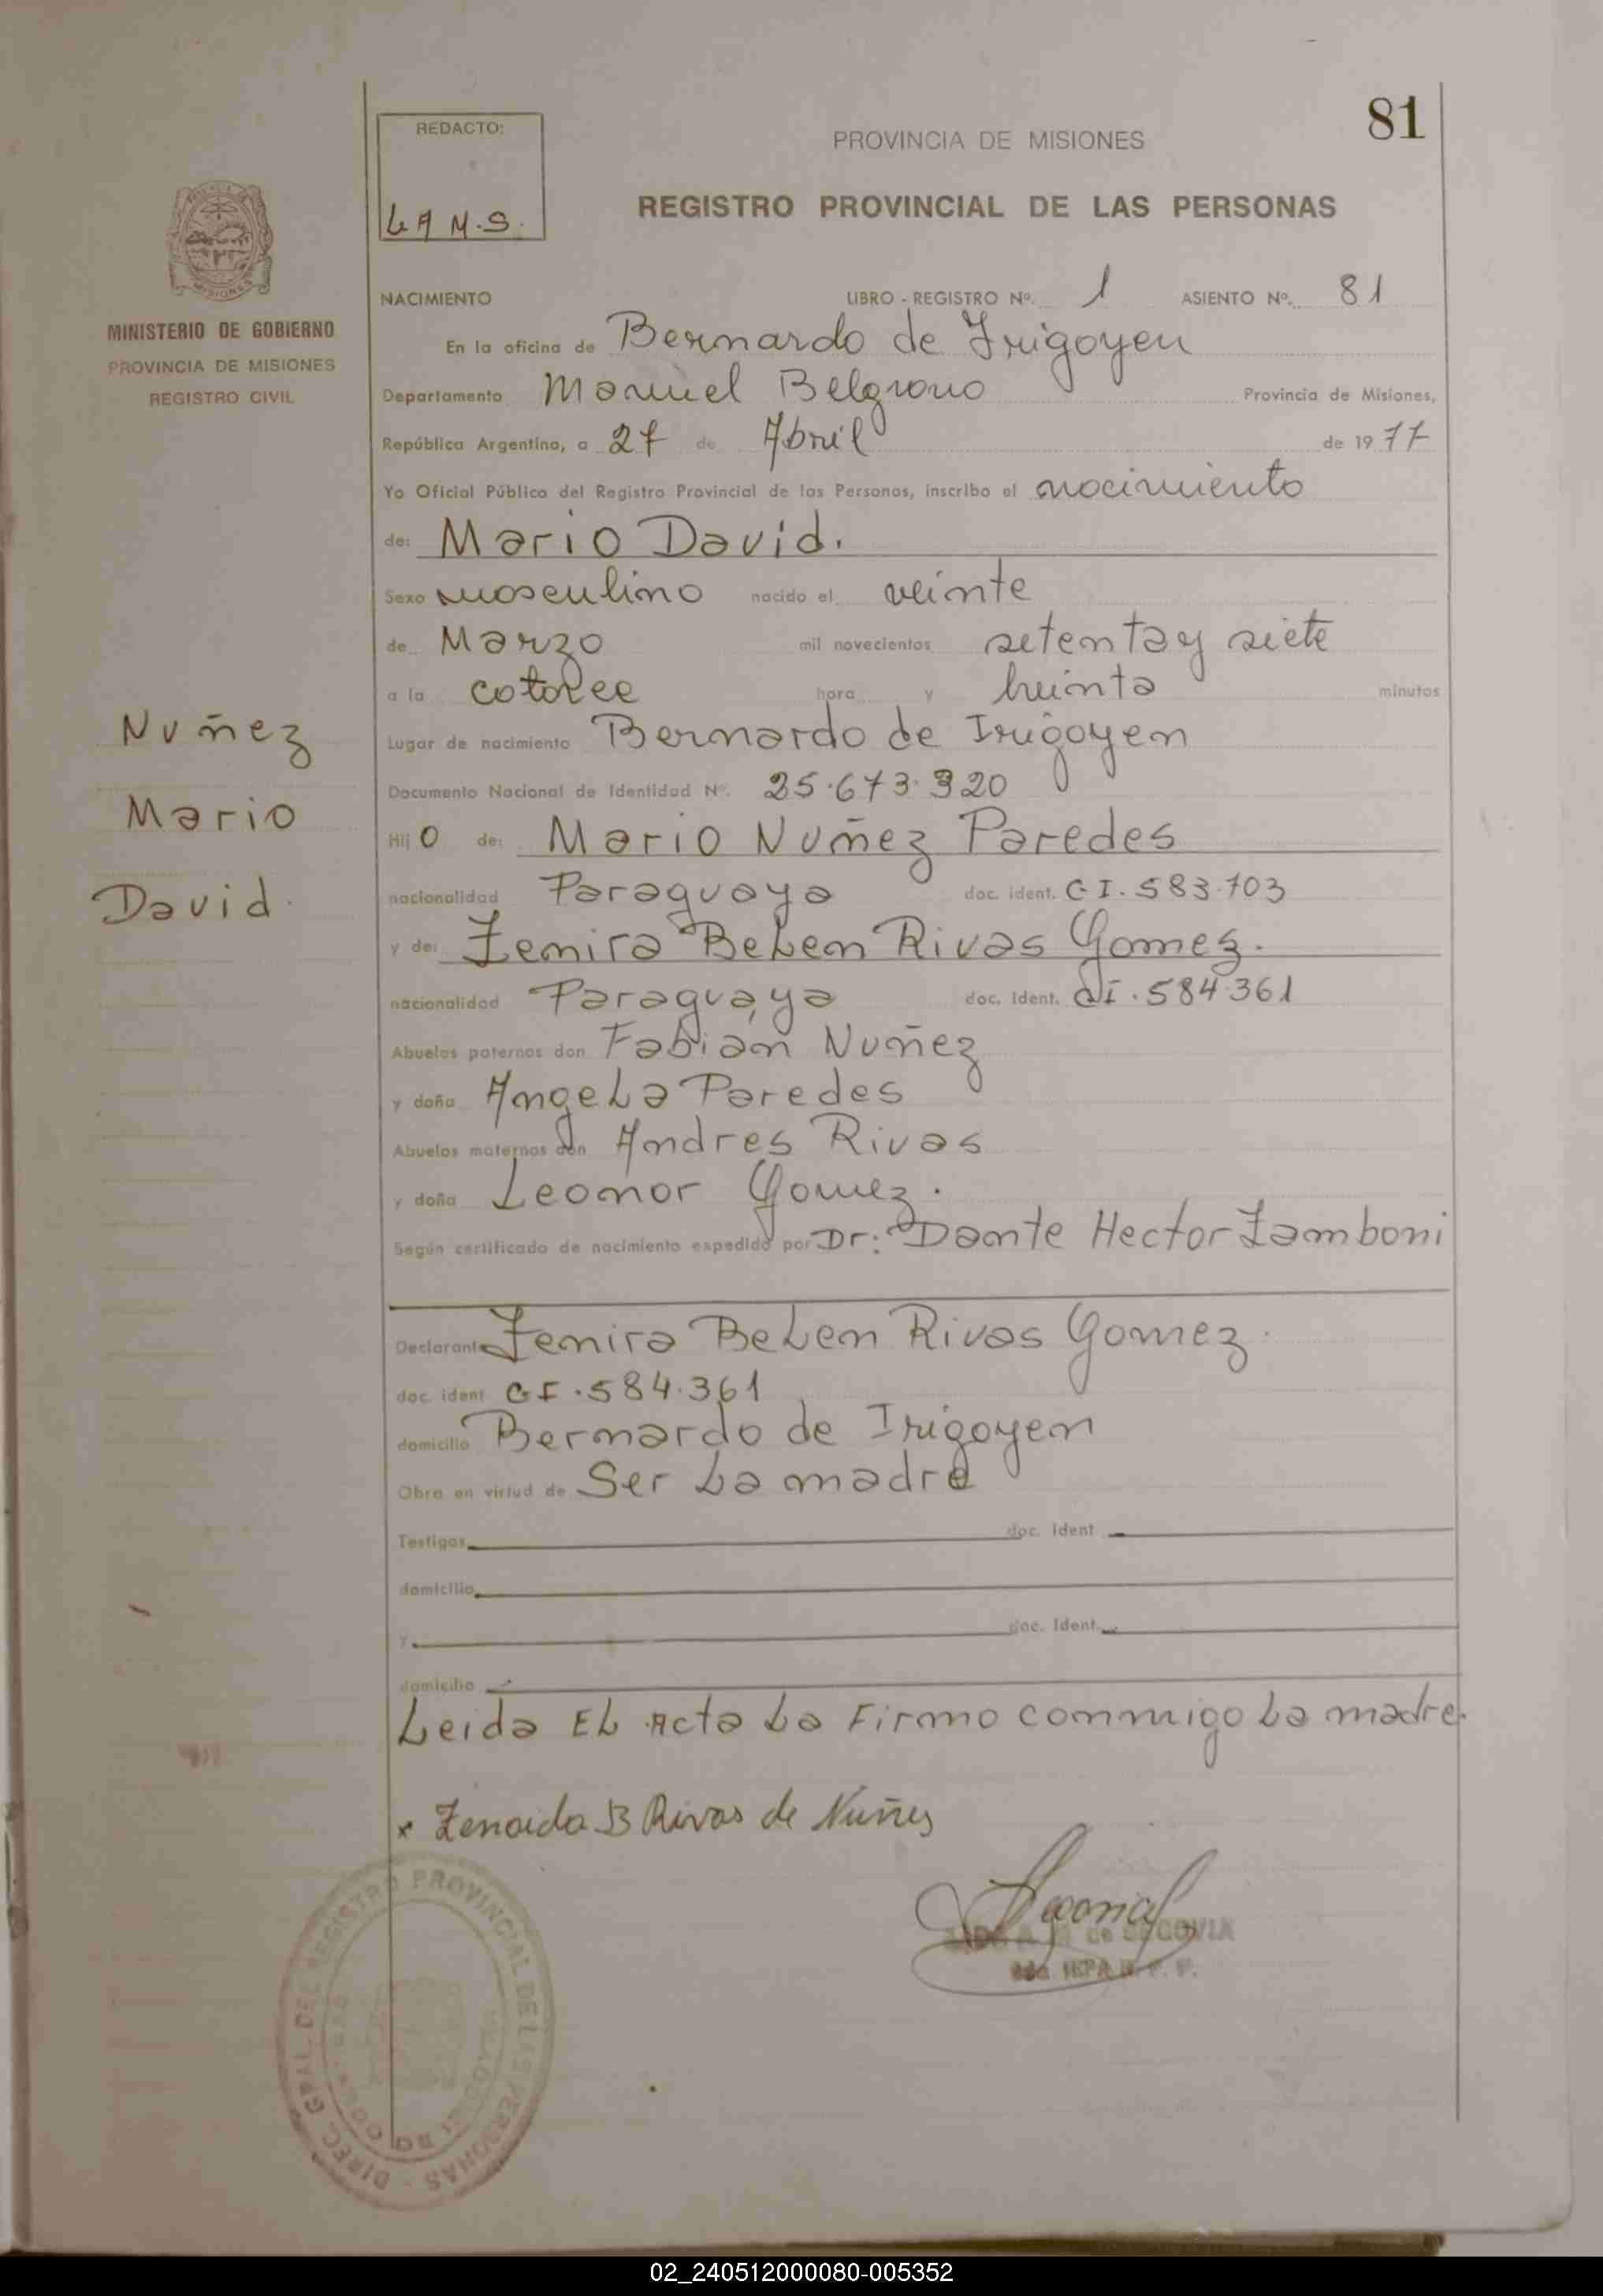 81
REDACTO:
L A M.S.
PROVINCIA DE MISIONES
REGISTRO PROVINCIAL DE LAS PERSONAS
MISIONES
MINISTERIO DE GOBIERNO
PROVINCIA DE MISIONES
REGISTRO CIVIL
NACIMIENTO LIBRO - REGISTRO Nº. 1 ASIENTO Nº. 81
En la oficina de Bernardo de Irigoyen
Departamento Manuel Belgrano Provincia de Misiones,
República Argentina, a 27 de Abril de 1977
Yo Oficial Público del Registro Provincial de las Personas, inscribo el nacimiento
de: Mario David.
Sexo masculino nacido el veinte
de Marzo mil novecientos setenta y siete
a la catorce hora y treinta minutos
Nuñez
Mario
David.
Lugar de nacimiento Bernardo de Irigoyen
Documento Nacional de Identidad Nº. 25.673.320
Hijo de: Mario Nuñez Paredes
nacionalidad Paraguaya doc. ident. C.I. 583.703
y de: Zenira Belen Rivas Gomez.
nacionalidad Paraguaya doc. Ident. CI. 584.361
Abuelos paternos don Fabián Nuñez
y doña Angela Paredes
Abuelos maternos don Andres Rivas
y doña Leonor Gomez.
Según certificado de nacimiento expedido por Dr: Dante Hector Zamboni
Declarante Zenira Belen Rivas Gomez.
doc. ident CI. 584.361
domicilio Bernardo de Irigoyen
Obra en virtud de Ser La madre
Testigos doc. Ident
domicilio
y doc. Ident.
domicilio
Leida EL Acta La Firmo conmigo La madre.
x Zenaida B Rivas de Nuñes
de SEGOVIA
DIREC. GRAL. DEL REGISTRO PROVINCIAL DE LAS PERSONAS
02_240512000080-005352